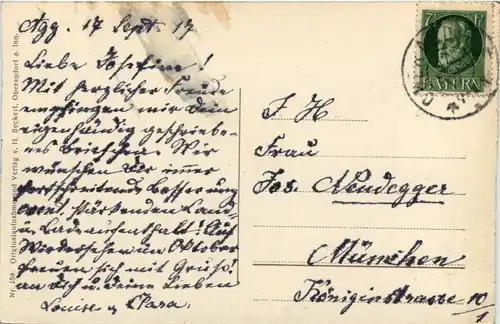 Agg. 17 Sept. 17
Liebe Josefine!
Mit herzlicher Freude
empfingen wir Dein
eigenhändig geschriebe-
nes Briefchen. Wir
wünschen Dir immer
fortschreitende Besserung
event. stärkenden Land-
u. Badeaufenthalt! Auf
Wiedersehen im Oktober
freuen sich mit Gruß
an Dich u. deine Lieben
Louise u. Clara.
I H
Frau
Jos. Neudegger
München
Königinstrasse 10/1
7 Pf
BAYERN
Nr. 159. Originalaufnahme und Verlag v. H. Beckert, Oberaudorf a. Inn.